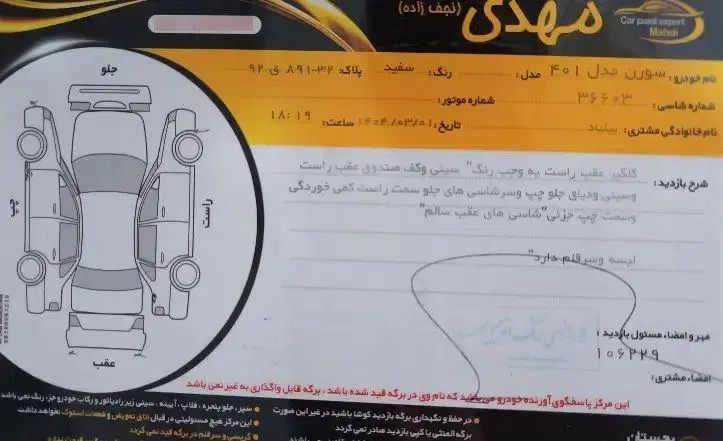 مهدی
(نجف زاده)
Car paint expert
Mahdi
نام خودرو: سورن مدل ۴۰۱ مدل: رنگ: سفید پلاک: ۳۲-۸۹۱ ق ۹۲
شماره شاسی: ۳۶۶۰۳ شماره موتور:
نام خانوادگی مشتری: تاریخ: ۱۴۰۴/۰۳/۰۱ ساعت: ۱۸:۱۹
جلو
چپ
راست
عقب
شرح بازدید: گلگیر عقب راست یه وجب رنگ" سینی وکف صندوق عقب راست
وسینی ودیاق جلو چپ وسرشاسی های جلو سمت راست کمی خوردگی
وسمت چپ جزئی"شاسی های عقب سالم"
لیسه وسرقلم دارد"
مهر و امضاء، مسئول بازدید:
۱۰۶۲۲۹
امضاء، مشتری:
این مرکز پاسخگوی آورنده خودرو میباشد که نام وی در برگه قید شده باشد ، برگه قابل واگذاری به غیر نمی باشد
در حفظ و نگهداری برگه بازدید کوشا باشید در غیر این صورت
برگه المثنی یا کپی بازدید صادر نمی گردد
سپر، جلو پنجره ، قلاپ ، آیینه ، سینی زیر رادیاتور و رکاب خودرو جزء رنگ نمی باشد
این مرکز هیچ مسئولیتی در قبال اتاق تعویض و قطعات استوک نخواهد داشت
گریسی و سرقلم در برگه قید نمی گردد